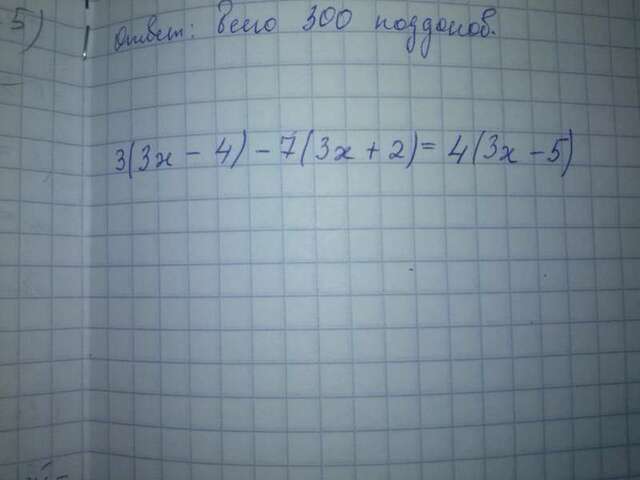 5)
Ответ: всего 300 поддонов.
3(3x - 4) - 7(3x + 2) = 4(3x - 5)